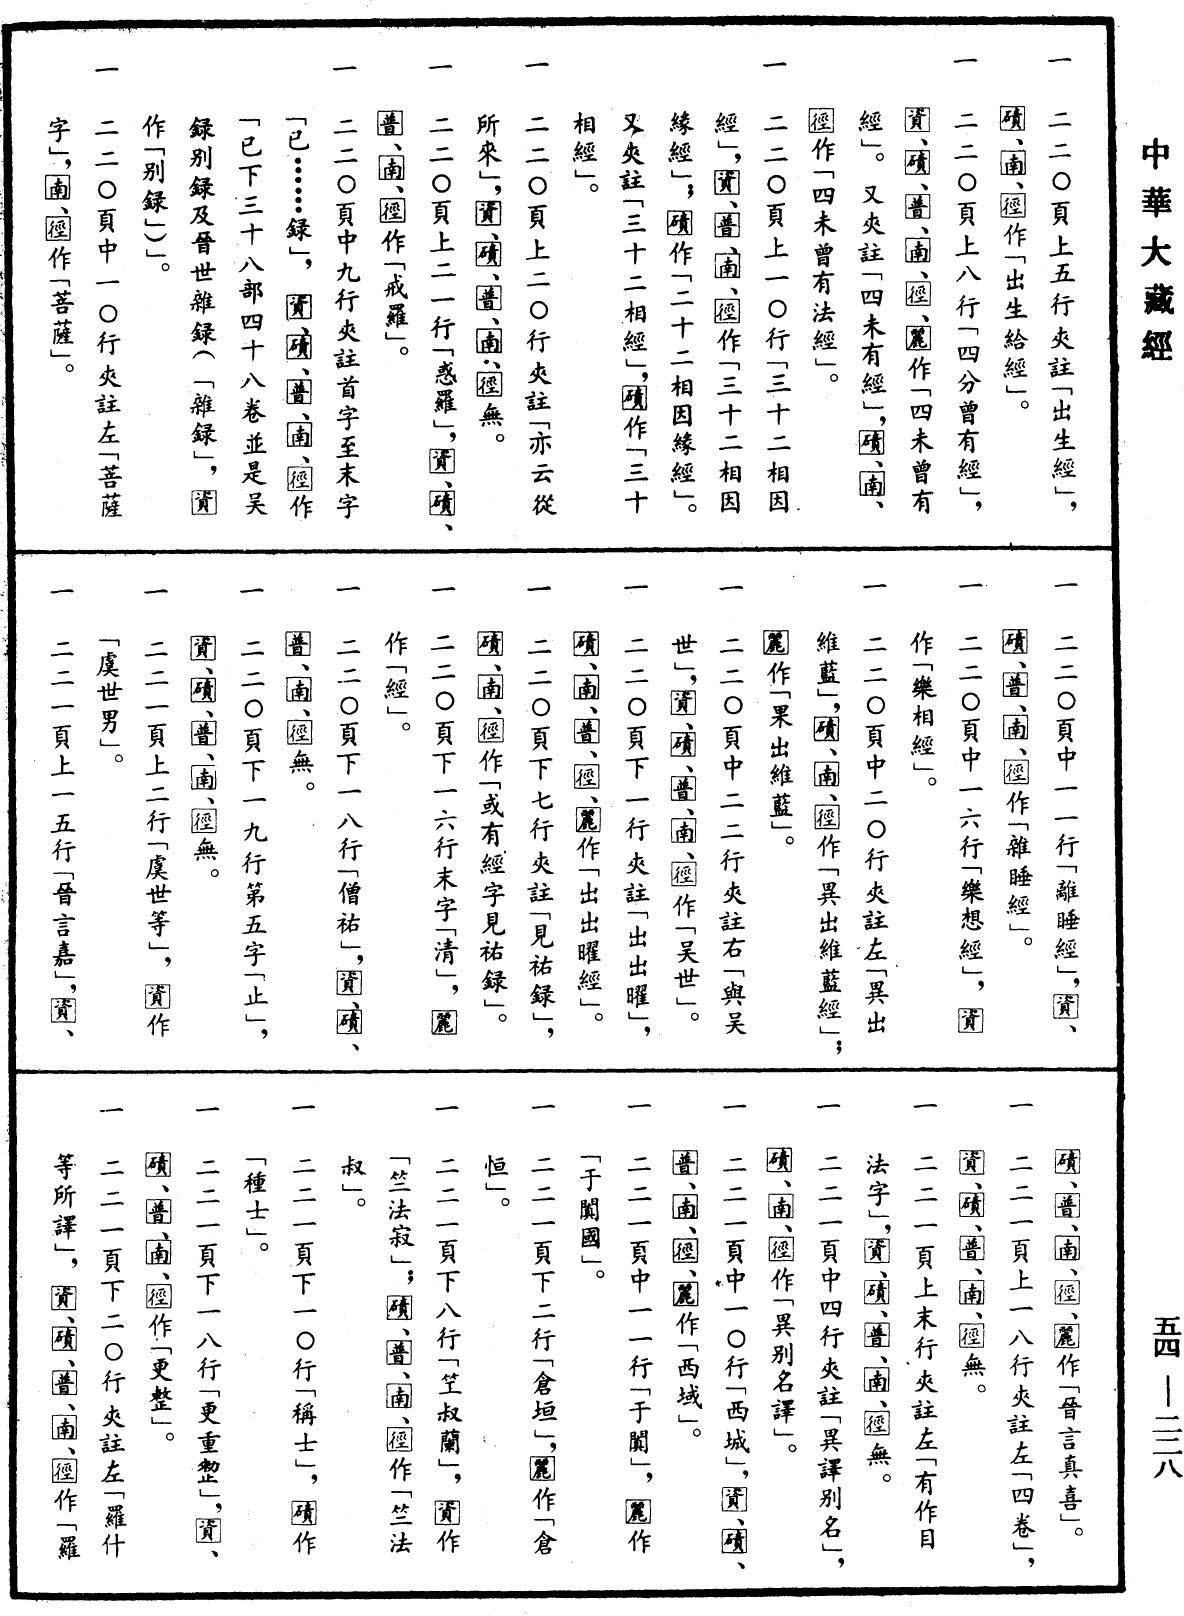 中華大藏經
一　二二〇頁上五行夾註「出生經」，
磧、南、徑作「出生給經」。
一　二二〇頁上八行「四分曾有經」，
資、磧、普、南、徑、麗作「四未曾有
經」。又夾註「四未有經」，磧、南、
徑作「四未曾有法經」。
一　二二〇頁上一〇行「三十二相因
經」，資、普、南、徑作「三十二相因
緣經」；磧作「二十二相因緣經」。
又夾註「三十二相經」，磧作「三十
相經」。
一　二二〇頁上二〇行夾註「亦云從
所來」，資、磧、普、南、徑無。
一　二二〇頁上二一行「惑羅」，資、磧、
普、南、徑作「戒羅」。
一　二二〇頁中九行夾註首字至末字
「已……録」，資、磧、普、南、徑作
「已下三十八部四十八卷並是吴
録别録及晉世雜録（「雜録」，資
作「别録」）」。
一　二二〇頁中一〇行夾註左「菩薩
字」，南、徑作「菩薩」。
一　二二〇頁中一一行「離睡經」，資、
磧、普、南、徑作「雜睡經」。
一　二二〇頁中一六行「樂想經」，資
作「樂相經」。
一　二二〇頁中二〇行夾註左「異出
維藍」，磧、南、徑作「異出維藍經」；
麗作「果出維藍」。
一　二二〇頁中二二行夾註右「與吴
世」，資、磧、普、南、徑作「吴世」。
一　二二〇頁下一行夾註「出出曜」，
磧、南、普、徑、麗作「出出曜經」。
一　二二〇頁下七行夾註「見祐録」，
磧、南、徑作「或有經字見祐録」。
一　二二〇頁下一六行末字「清」，麗
作「經」。
一　二二〇頁下一八行「僧祐」，資、磧、
普、南、徑無。
一　二二〇頁下一九行第五字「止」，
資、磧、普、南、徑無。
一　二二一頁上二行「虞世等」，資作
「虞世男」。
一　二二一頁上一五行「晉言嘉」，資、
磧、普、南、徑、麗作「晉言真喜」。
一　二二一頁上一八行夾註左「四卷」，
資、磧、普、南、徑無。
一　二二一頁上末行夾註左「有作目
法字」，資、磧、普、南、徑無。
一　二二一頁中四行夾註「異譯别名」，
磧、南、徑作「異别名譯」。
一　二二一頁中一〇行「西城」，資、磧、
普、南、徑、麗作「西域」。
一　二二一頁中一一行「于闐」，麗作
「于闐國」。
一　二二一頁下二行「倉垣」，麗作「倉
恒」。
一　二二一頁下八行「笁叔蘭」，資作
「竺法寂」；磧、普、南、徑作「竺法
叔」。
一　二二一頁下一〇行「稱士」，磧作
「種士」。
一　二二一頁下一八行「更重整」，資、
磧、普、南、徑作「更整」。
一　二二一頁下二〇行夾註左「羅什
等所譯」，資、磧、普、南、徑作「羅
五四——二二八